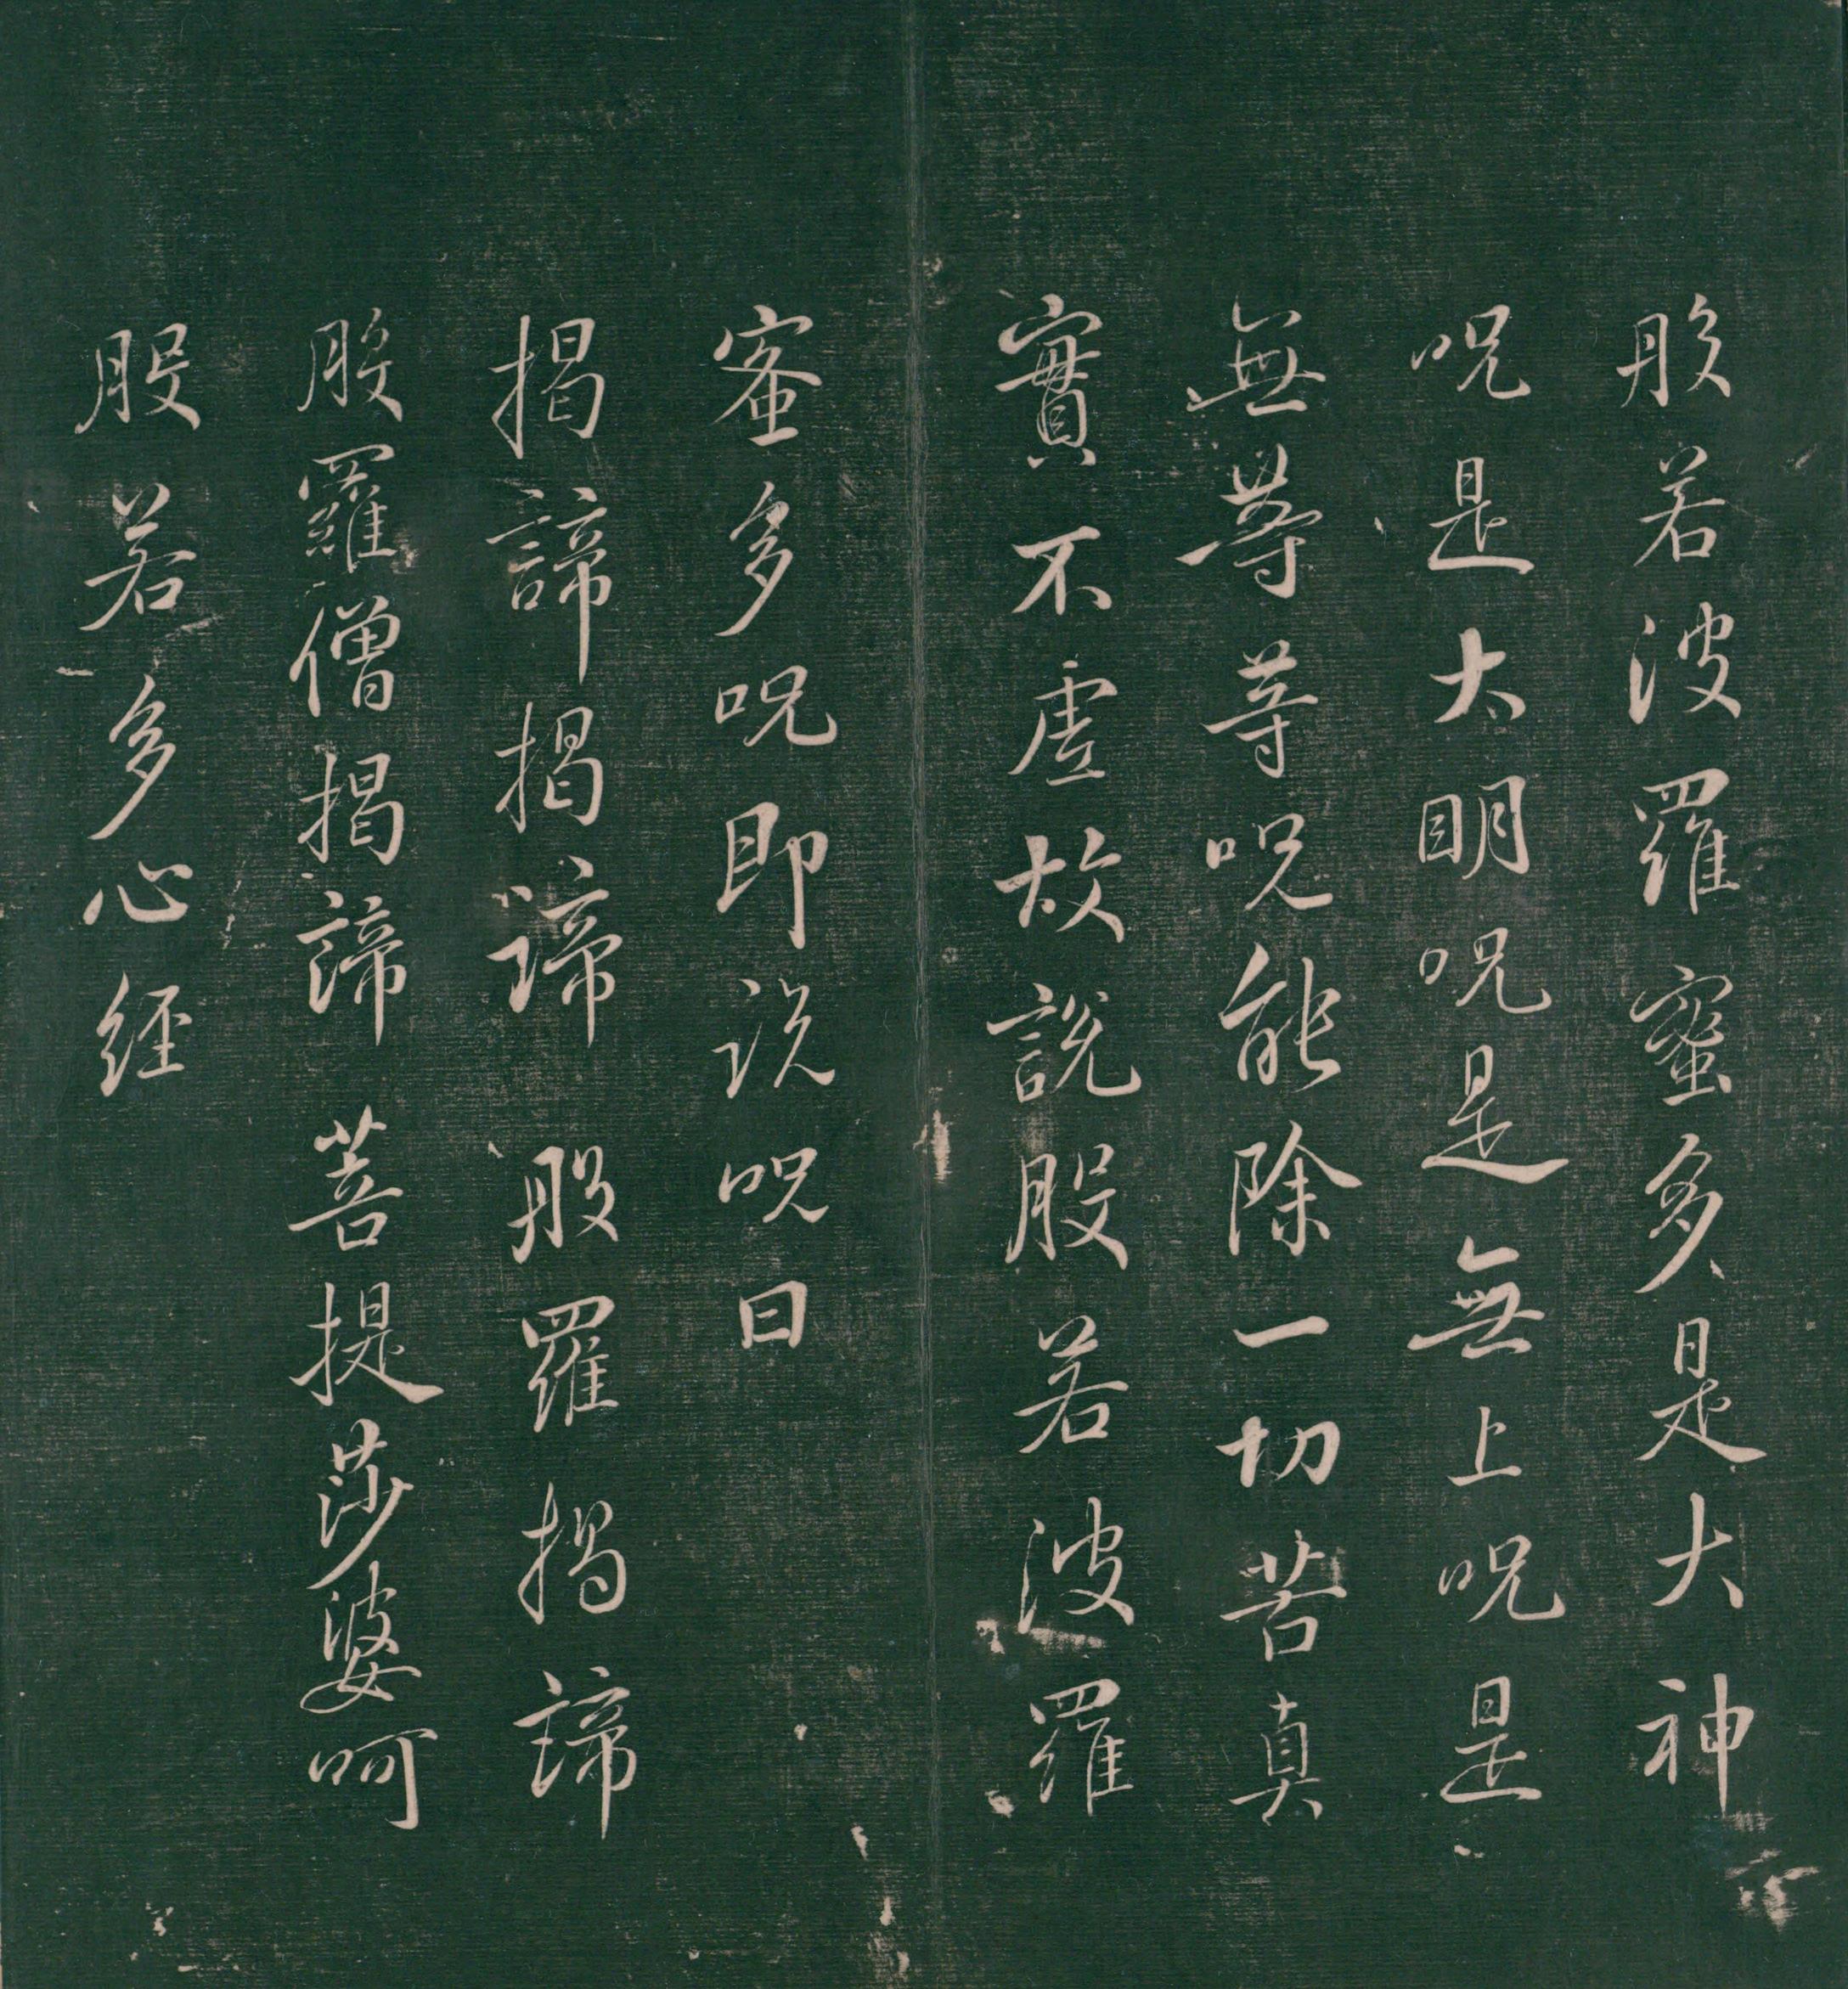 般若波羅蜜多是大神
呪是大明呪是無上呪是
無等等呪能除一切苦真
實不虛故說般若波羅
蜜多呪即說呪曰
揭諦揭諦 般羅揭諦
般羅僧揭諦 菩提莎婆呵
般若多心經